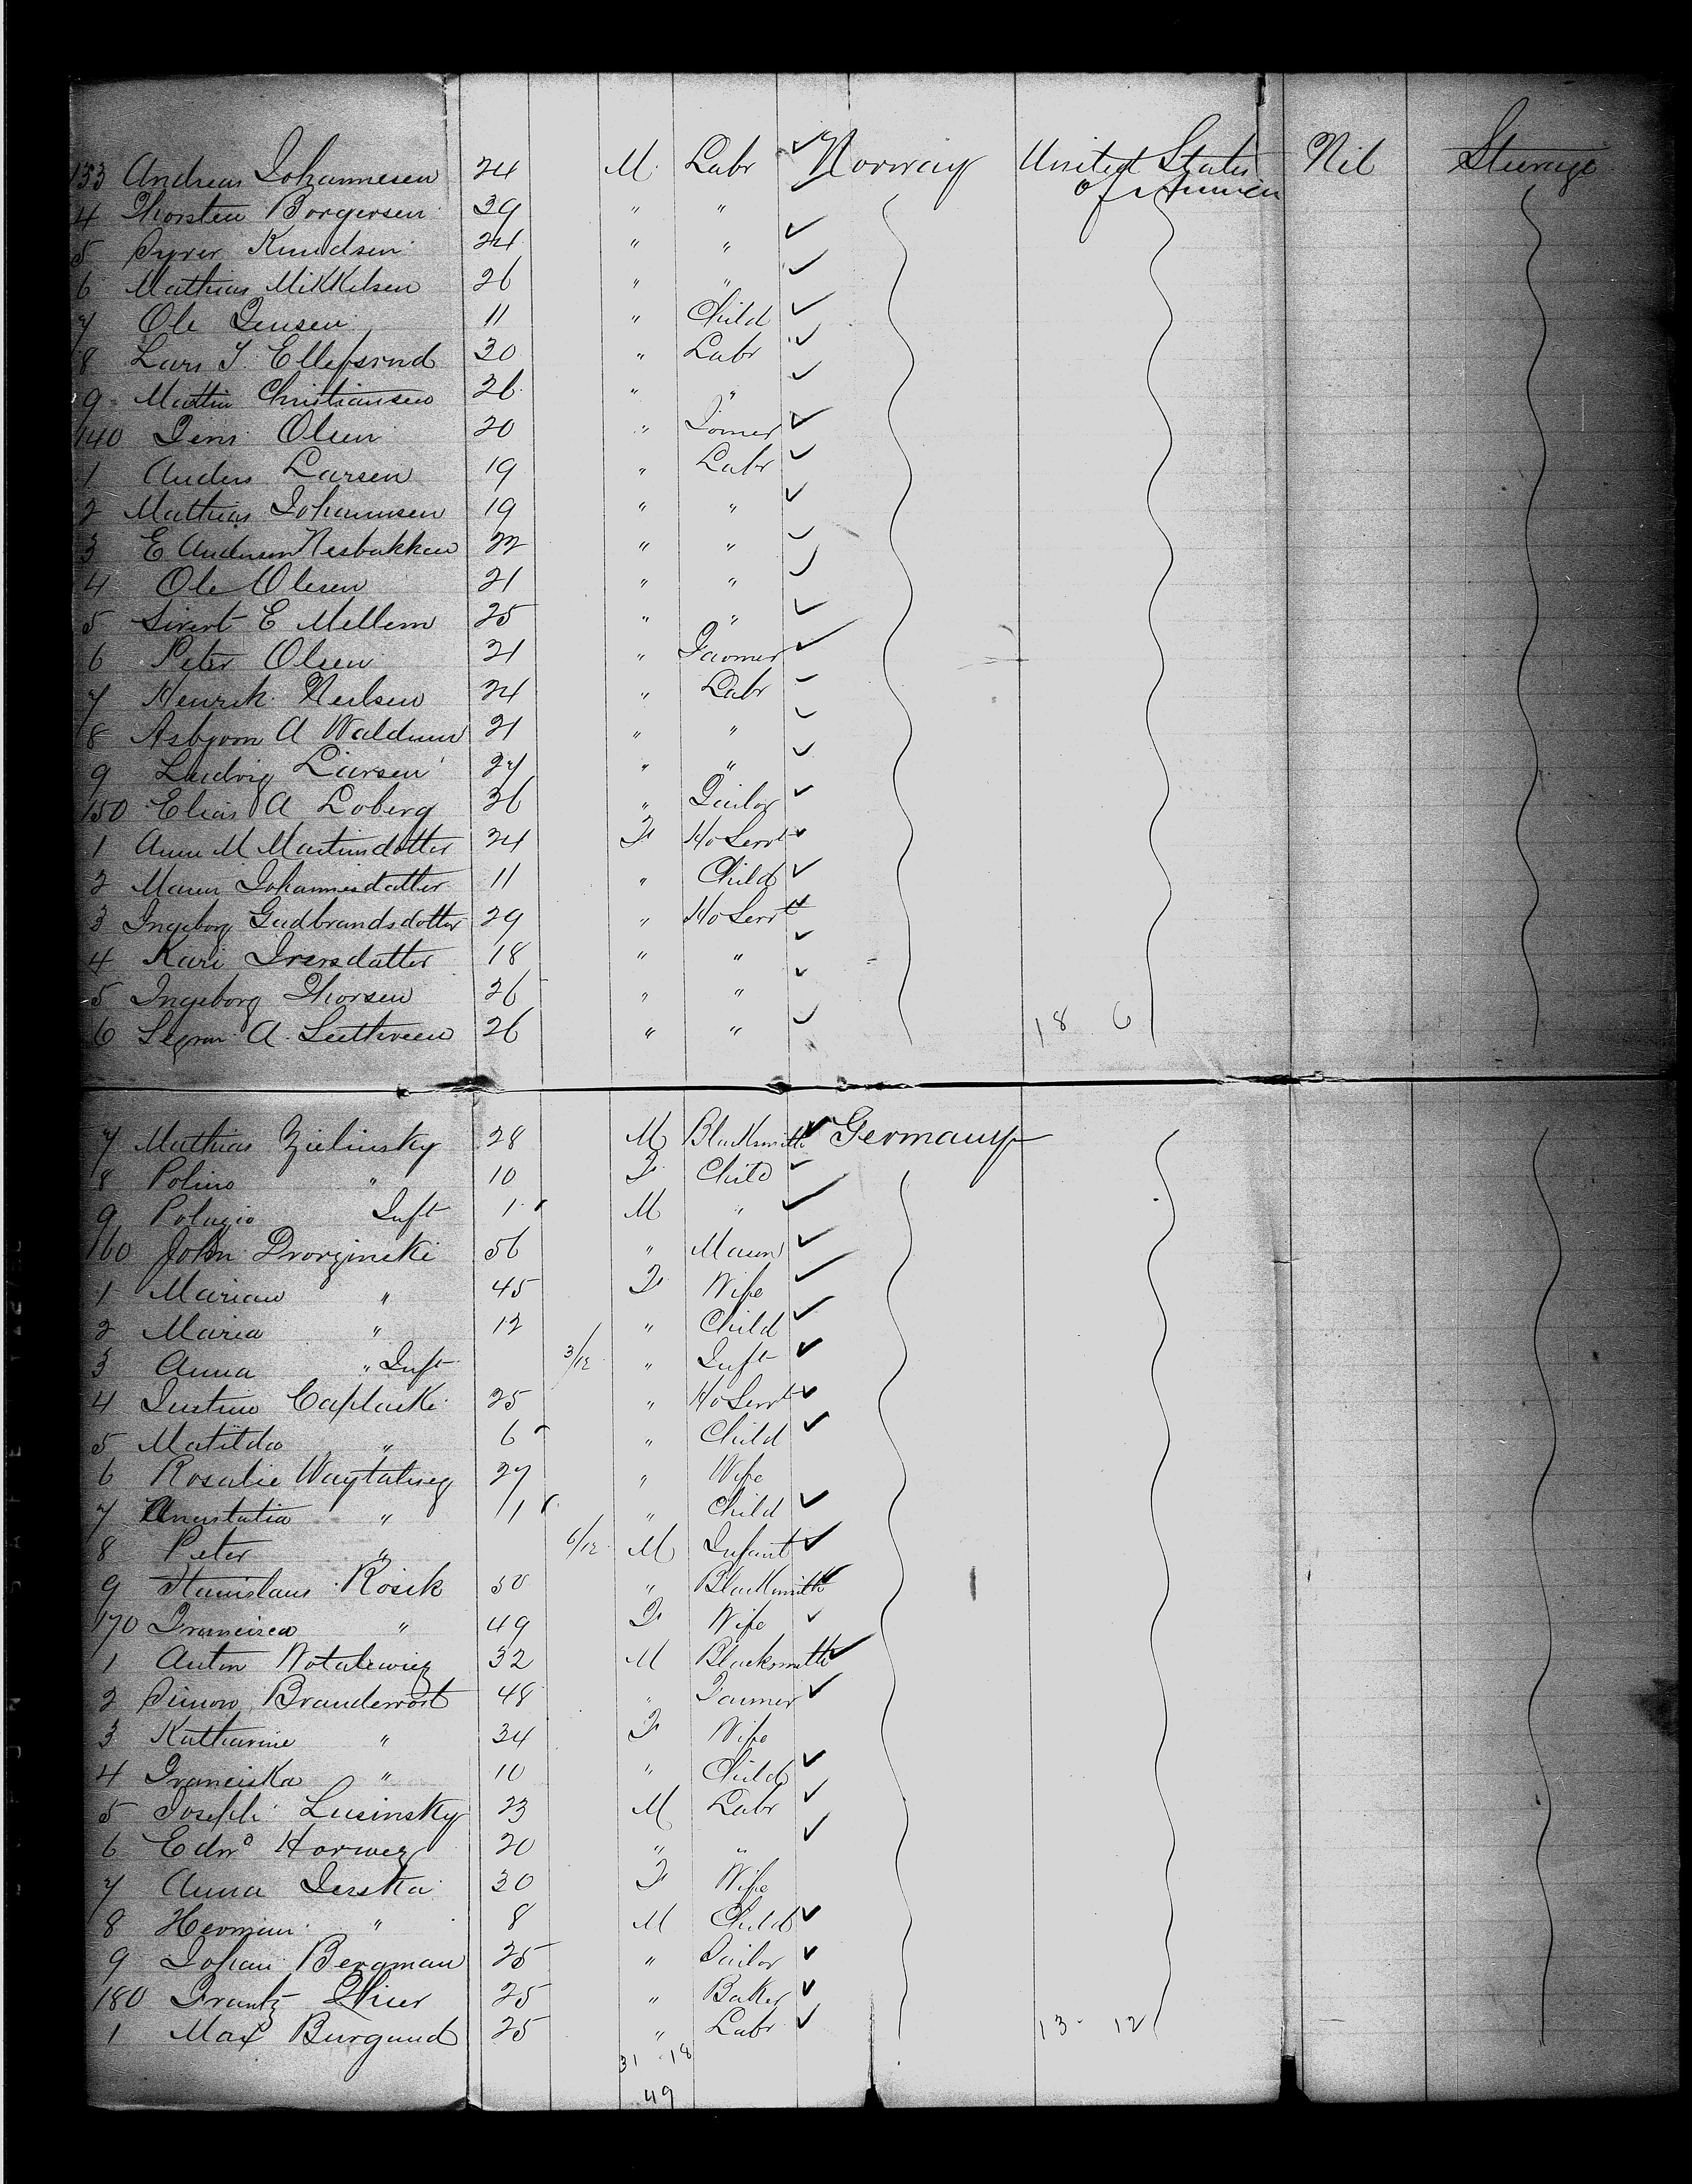 133 Andreas Johannesen 24 M. Labr Norway United States of America Nil Steerage
4 Thorsten Borgersen 39 " "
5 Syver Knudsen 24 " "
6 Mathias Mikkelsen 26 " "
7 Ole Jensen 11 " Child
8 Lars J. 30 " Labr
9 Martin Christiansen 26 " "
140 Jens Olsen 20 "
1 Anders Larsen 19 " Labr
2 Mathias Johannsen 19 " "
3 E Andersen Nesbakken 22 " "
4 Ole Olesen 21 " "
5 Sivert E Mellem 25 " "
6 Peter Olsen 21 " Farmer
7 Henrik Neilsen 24 " Labr
8 Asbjorn A 21 " "
9 Ludvig Larsen 27 " "
150 Elias A Loberg 36 " Tailor
1 Anne M Martinsdatter 24 F Ho Servt
2 Maren Johannesdatter 11 " Child
3 Ingeborg Gudbrandsdotter 29 " Ho Servt
4 Kari Iversdatter 18 " "
5 Ingeborg Thorsen 26 " "
6 A. 26 " " 18 6
7 Mathias Zielinsky 28 M Blacksmith Germany
8 Polino " 10 F. Child
9 Polagio Inft 1 M "
160 John Drorzinski 56 " Mason
1 Marian " 45 F Wife
2 Maria " 12 " Child
3 Anna " Inft 3/12 " Inft
4 Justine Caplacki 25 " Ho Servt
5 Matilda " 6 " Child
6 Rosalie 27 " Wife
7 Anastatia " 11 " Child
8 Peter " 6/12 M Infant
9 Stanislaus Rosek 50 " Blacksmith
170 Francisca " 49 F Wife
1 Anton Notalewicz 32 M Blacksmith
2 Simon 48 " Farmer
3 Katharine " 34 F Wife
4 Franciska " 10 " Child
5 Joseph Lusinsky 23 M Labr
6 Edwd Horwez 20 " "
7 Anna Jerska 30 F Wife
8 Herman " 8 M Child
9 Johan Bergman 25 " Tailor
180 Frantz 25 " Baker
1 Max Burgund 25 " Labr 13 - 12
31 - 18
49